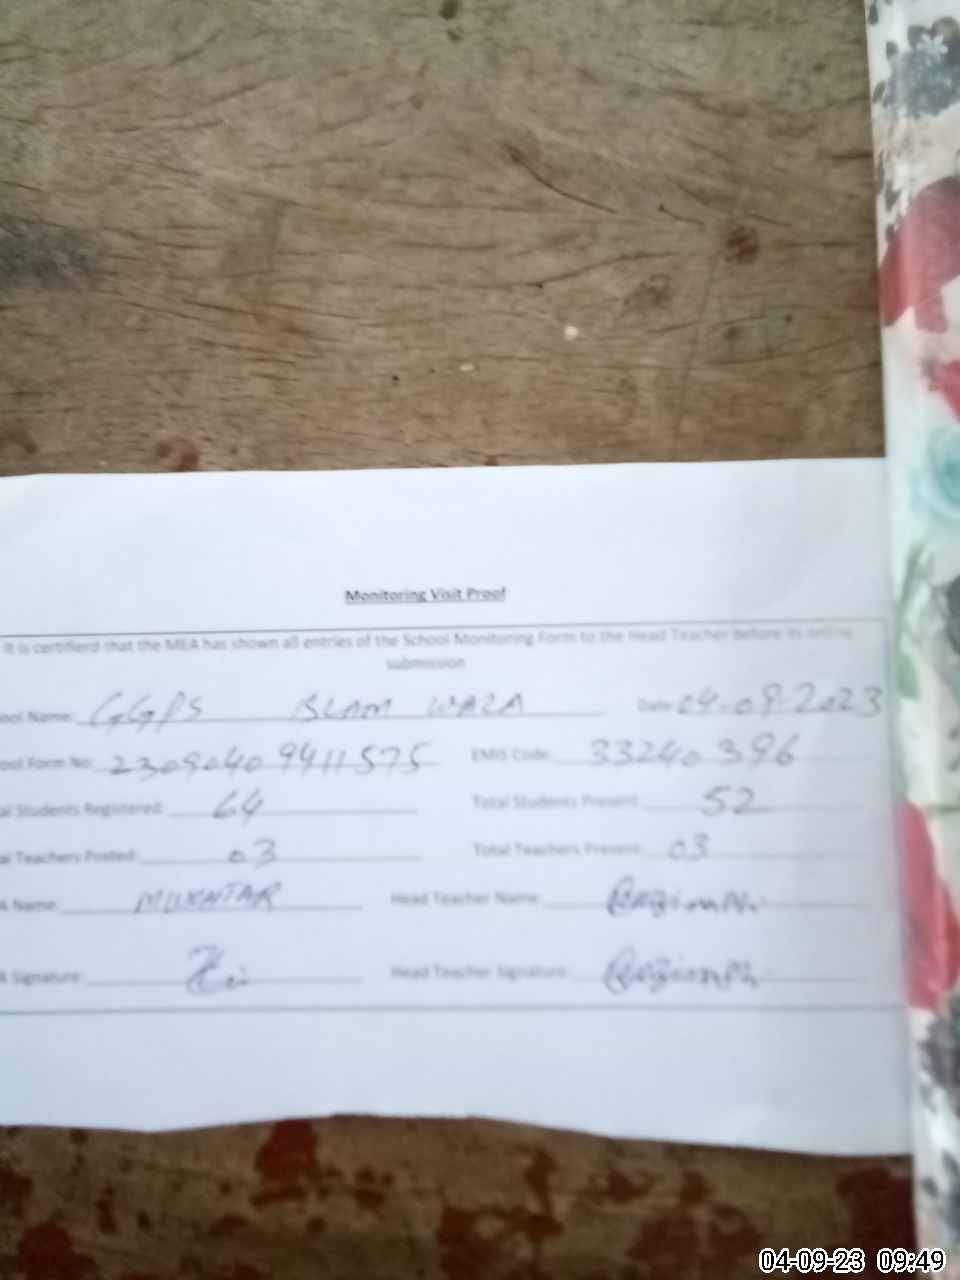 Monitoring Visit Proof
It is certifierd that the MEA has shown all entries of the School Monitoring Form to the Head Teacher before its online
submission
ool Name: GGPS ISLAM WALA Date: 04-09-2023
ool Form No: 2309040 9941157 5 EMIS Code: 33240396
al Students Registered: 64 Total Students Present: 52
al Teachers Posted: 03 Total Teachers Present: 03
A Name: MUKHTAR Head Teacher Name:
A Signature: Head Teacher Signature:
04-09-23 09:49